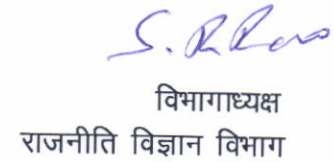 S. R. Rao
विभागाध्यक्ष
राजनीति विज्ञान विभाग